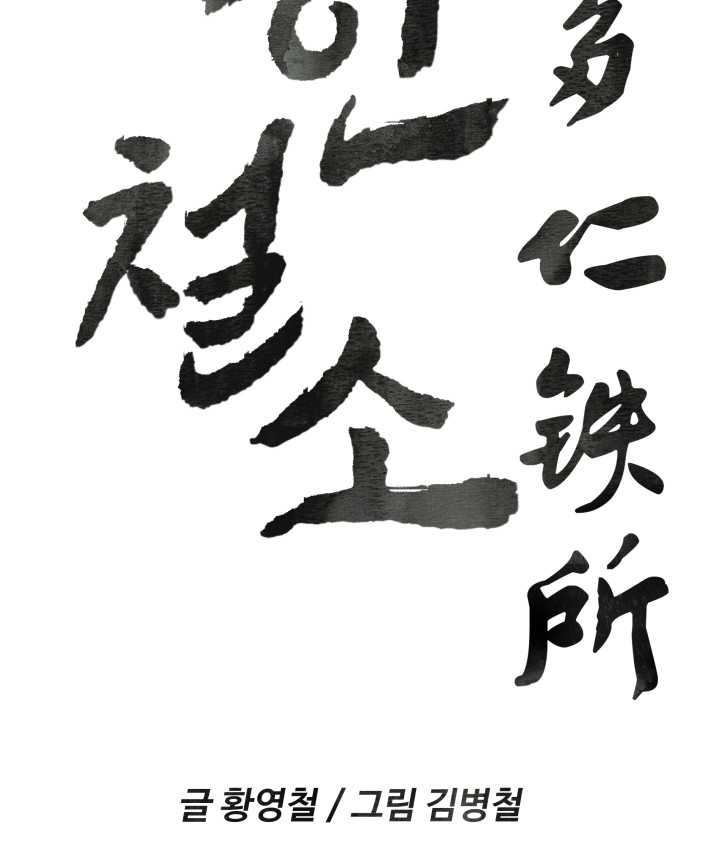 인
철
소
多
仁
铁
所
글 황영철 / 그림 김병철